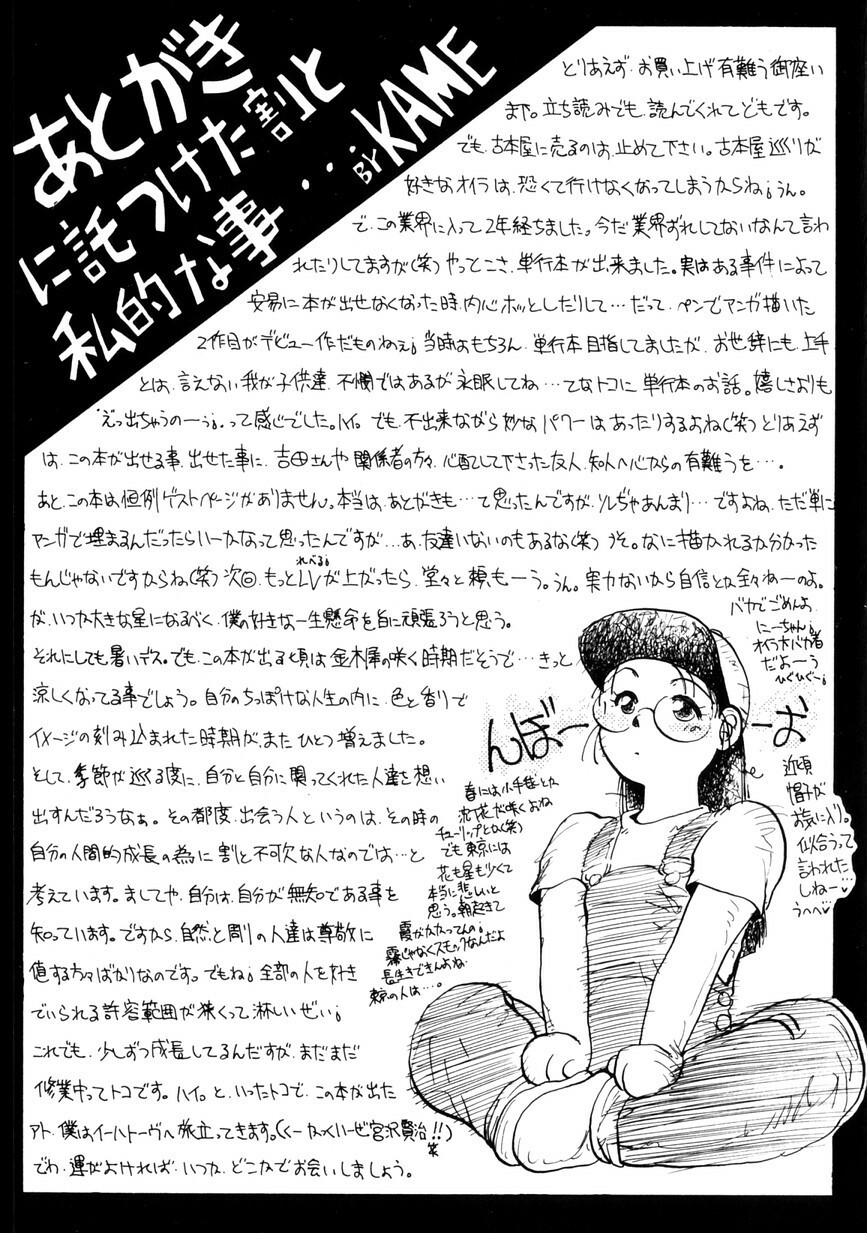 あとがき
に託つけた割と
私的な事...
BY KAME
とりあえず、お買い上げ有難う御座い
ます。立ち読みでも、読んでくれてどもです。
でも、古本屋に売るのは、止めて下さい。古本屋巡りが
好きなオイラは、恐くて行けなくなってしまうからね¡うん。
で、この業界に入って2年経ちました。今だ業界ずれしてないなんて言わ
れたりしてますが(笑)やっとこさ、単行本が出来ました。実はある事件によって
安易に本が出せなくなった時、内心ホッとしたりして…だって、ペンでマンガ描いた
2作目がデビュー作だものねぇ¡当時はもちろん、単行本目指してましたが、お世辞にも、上手
とは、言えない我が子供達、不憫ではあるが永眠してね…てなトコに、単行本のお話。嬉しさよりも
“えっ出ちゃうのーぅ¡、って感じでした。ハイ。でも、不出来ながら妙なパワーはあったりするよね(笑)とりあえず
は、この本が出せる事、出せた事に、吉田さんや関係者の方々、心配して下さった友人、知人へ心からの有難うを…。
あと、この本は恒例ゲストページがありません。本当は、あとがきも…て思ったんですが、ソレぢゃあんまり…ですよね、ただ単に
マンガで埋まるんだったらいーかなって思ったんですが…あ、友達いないのもあるな(笑)うそ。なに描かれるか分かった
もんじゃないですからね(笑)次回、もっとLVが上がったら、堂々と頼もーう。うん。実力ないから自信とか全々ねーのよ。
れべる¡
が、いつか大きな星になるべく、僕の好きな一生懸命を旨に頑張ろうと思う。
それにしても暑いデス。でも、この本が出る頃は金木犀の咲く時期だそうで…きっと
涼しくなってる事でしょう。自分のちっぽけな人生の内に、色と香りで
イメージの刻み込まれた時期が、また ひとつ増えました。
そして、季節が巡る度に、自分と自分に関ってくれた人達を想い
出すんだろうなぁ。その都度、出会う人というのは、その時の
自分の人間的成長の為に 割と不可欠な人なのでは…と
考えています。ましてや、自分は、自分が無知である事を
知っています。ですから、自然と周りの人達は尊敬に
値する方々ばかりなのです。でもね¡全部の人を好き
でいられる許容範囲が狭くって淋しいぜい¡
これでも、少しずつ成長してるんですが、まだまだ
修業中ってトコです。ハイ。と、いったトコで、この本が出た
アト、僕はイーハトーヴへ旅立ってきます。(くーかっくいーぜ宮沢賢治!!)
でわ、運がよければ、いつか、どこかでお会いしましょう。
バカでごめんよ
にーちゃん¡
オイラ大バカ者
だよーう
ひぐひぐー¡
おーんぼー
近頃
帽子が
お気に入り。
似合うって
言われた
しねー♡
うへへ♡
春には小手毬とか
沈丁花が咲くよね
チューリップとか(笑)
でも東京には
花も星も少くて
本当に悲しいと
思う。朝起きて
霞がかかってんの¡
霧じゃなくスモッグなんだよ
長生きできんよね
東京の人は…。